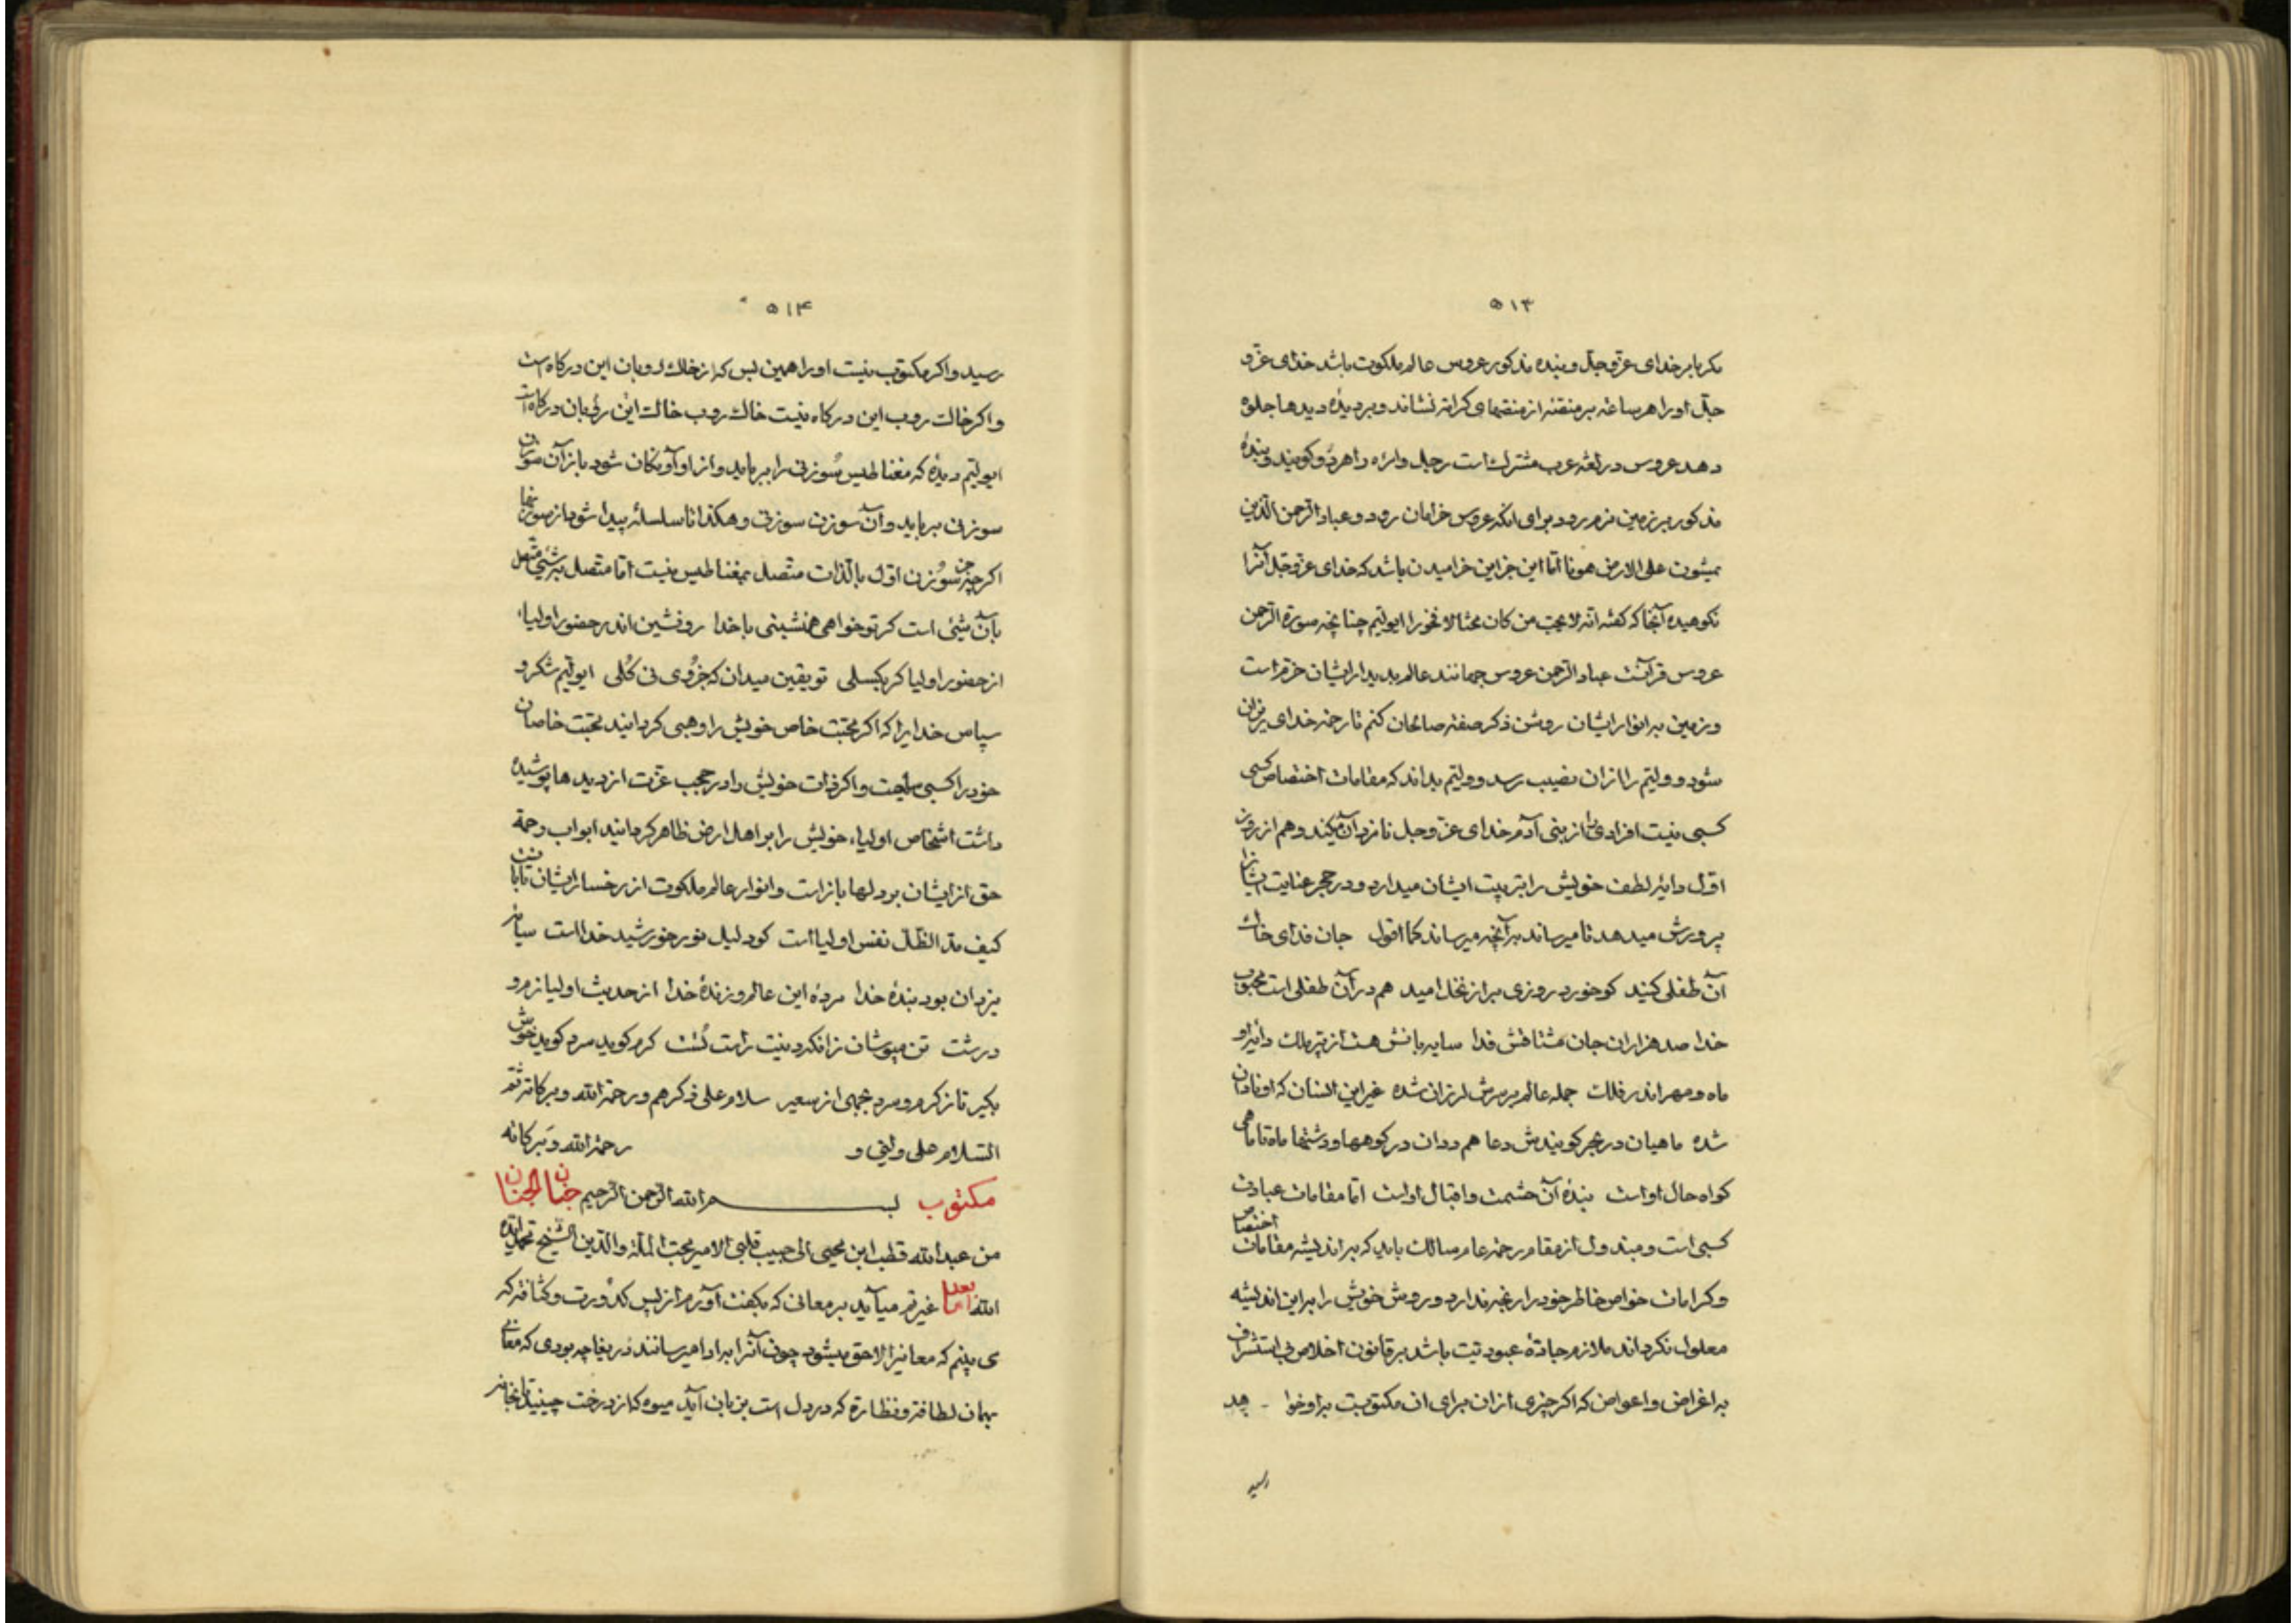 ۵۱۳
مکر یا بر خدای عزوجل و بنده مذکور عروس عالم ملکوت باشد خدای عزو
جل او را هر ساعه بر منقنه از منقصهای کرامه نشاند و بر دیدهٔ دیدها جلوه
دهد عروس در لغه عرب مشترکست رجل وامراه را هر دو کویند و بندهٔ
مذکور بر زمین نرم رود برای انکه عروس خرامان رود و عباد الرحمن الذین
یمشون علی الارض هونا اما این جز این خرامیدن باشد که خدای عزوجل آنرا
نکوهیده آنجا که کفته انه لا یحب من کان مختالا فخورا ایولتیم چنانچه سورة الرحمن
عروس قرآنست عباد الرحمن عروس جهانند عالم بدیدار ایشان خرم است
و زمین به انوار ایشان روشن ذکر صفه صالحان کنم تا رحمه خدای ریزان
شود و ولتیم را ازان نصیب رسد و ولتیم بداند که مقامات اختصاص کسی
کسبی نیست افرادی را از بنی آدم خدای عزوجل نامزد آن میکند و هم از روز
اول دایه لطف خویش را بتربیت ایشان میدارد و در حجر عنایت ایشانرا
پرورش میدهد تا میرساند بر آنچه میرساند کما اقول جان فدای خاک
آن طفلی کنید کو خورد روزی بر از نخل امید هم در آن طفلی است محبوب
خدا صد هزاران جان مشتاقش فدا سایه بانش هست از پر ملک دایه او
ماه و مهر اندر فلک جمله عالم بر سرش لرزان شده غیر این انسان که او نادان
شده ماهیان در بحر کویندش دعا هم ددان در کوهها و دشتها ماه تا ماهی
کواه حال اواست بندهٔ آن حشمت و اقبال اواست اما مقامات عبادت
کسبی است و مبذول از مقام رحمه عام سالک باید که بر اندیشه مقامات اختصاص
و کرامات خواص خاطر خود را رنجه ندارد و روش خویش را بر این اندیشه
معلول نکرداند ملازم جادهٔ عبودیت باشد بر قانون اخلاص بی استشراف
به اغراض و اعواض که اکر چیزی ازان برای ان مکتوبست بر او خواهد
رسید
۵۱۴
رسید و اکر مکتوب نیست او را همین بس که از خاک روبان این درکاه است
و اکر خاک روب این درکاه نیست خاک روب خاک این روبان درکاه است
ایولتیم دیدهٔ که مغناطیس سوزنی را برباید و از او آونکان شود باز آن سوزن
سوزنی برباید و آن سوزن سوزنی و هکذا تا سلسله پیدا شود از سوزنها
اکر چه جز سوزن اول بالذات متصل بمغناطیس نیست اما متصل بر شیئ متصل
بآن شیئ است کر تو خواهی همنشینی با خدا رو نشین اندر حضور اولیاء
از حضور اولیا کر بکسلی تو یقین میدان که جزوی نی کلی ایولتیم شکر و
سپاس خدایرا که اکر محبت خاص خویش را وهبی کردانید محبت خاصان
خود را کسبی ساخت و اکر ذات خویش را در حجب عزت از دیدها پوشیده
داشت اشخاص اولیاء خویش را بر اهل ارض ظاهر کردانید ابواب رحمة
حق از ایشان بر دلها باز است و انوار عالم ملکوت از رخسار ایشان تابانست
کیف مد الظل نفس اولیا است کو دلیل نور خورشید خدا است سایه
یزدان بود بندهٔ خدا مردهٔ این عالم و زندهٔ خدا از حدیث اولیا نرم و
درشت تن مپوشان زانکه دینت راست پشت کرم کوید سرد کوید خوش
بکیر تا ز کرم و سرد بجهی از سعیر سلام علی ذکرهم و رحمة الله و برکاته ثم
السلام علی ولتیی و رحمة الله و برکاته
مکتوب بسم الله الرحمن الرحیم جنان الجنان
من عبد الله قطب ابن محیی الی حبیب قلبی الامیر محب الملة والدین الشیخ محمد ایده
الله اما بعد غیرتم میآید بر معانی که بکفت آورم از بس کدورت و کثافه که
می بینم که معانیرا لاحق میشود چون آنرا بر ادا میرسانند دریغا چه بودی که معانی
بهمان لطافة و نظارة که در دل است بزبان آید میوه که از درخت چینید تا بخانه